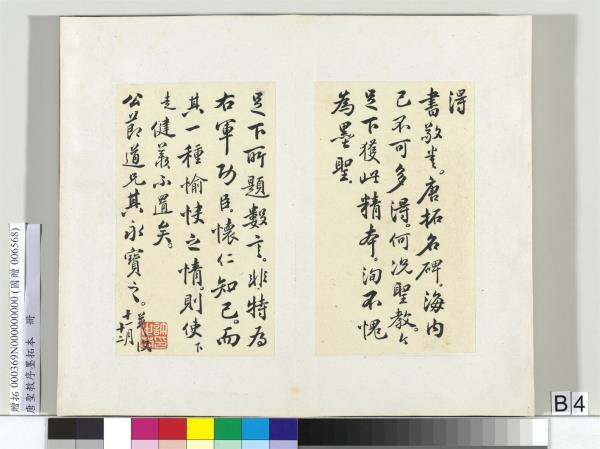 得
書敬悉。唐拓名碑。海内
已不可多得。何況聖教。今
足下獲此精本。洵不愧
為墨聖。
足下所題數言。非特為
右軍功臣。懷仁知己。而
其一種愉快之情。則使下
走健羨不置矣。
公節道兄其永寶之。
十一月
十二
贈拓 000369N000000000 (國贈 006568)
唐聖教序墨拓本 冊
B 4